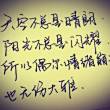 天空不总是晴朗
阳光不总是闪耀
所以偶尔情绪崩
也无伤大雅